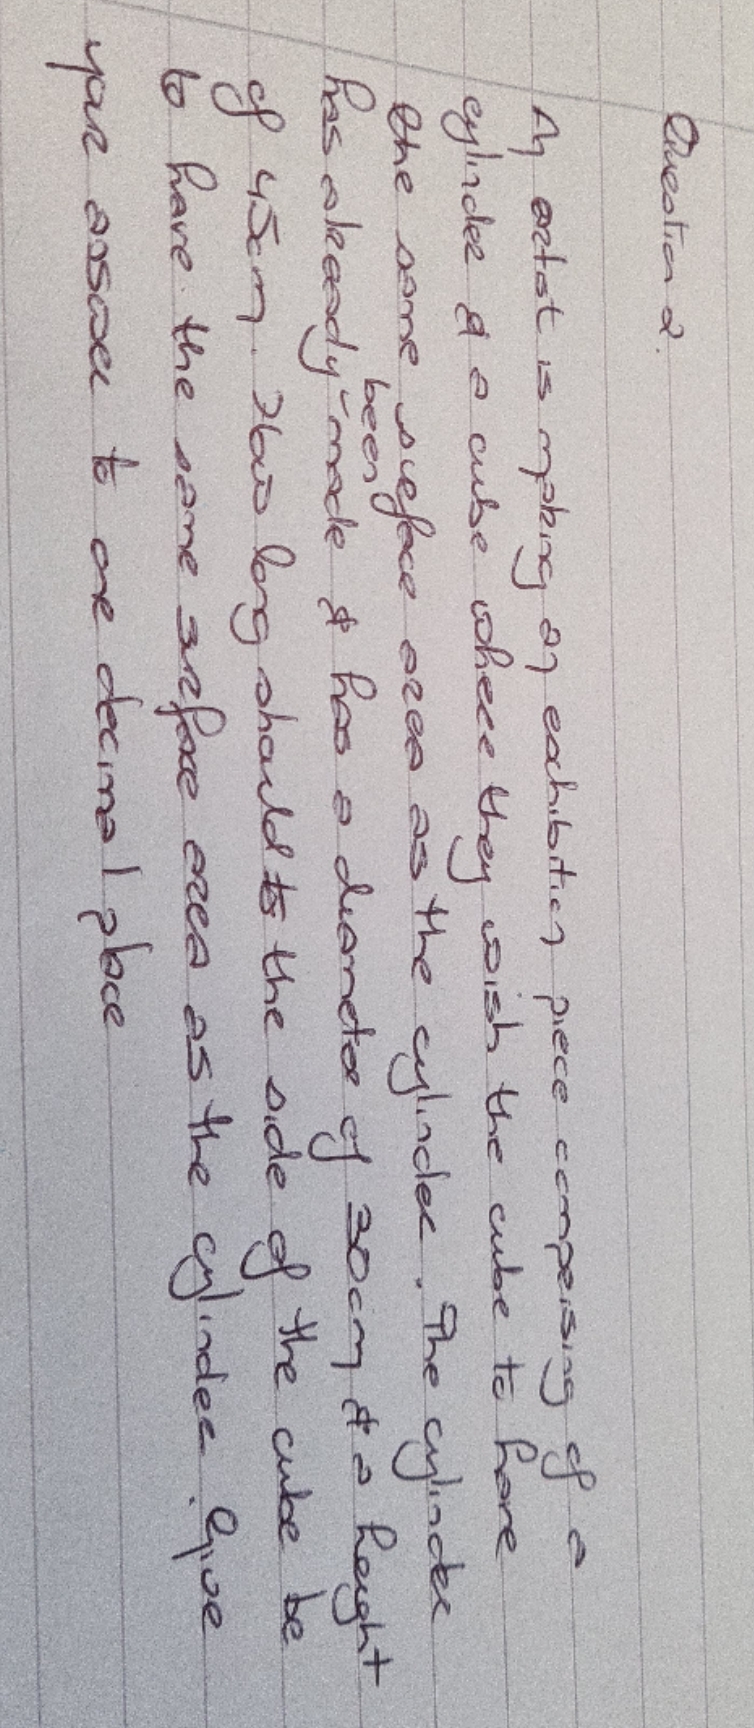 Question 2.
An artist is making an exhibition piece comprising of a
cylinder & a cube where they wish the cube to have
the same surface area as the cylinder. The cylinder
has already been made & has a diameter of 30cm & a height
of 45cm. How long should to the side of the cube be
to have the same surface area as the cylinder. Give
your answer to one decimal place